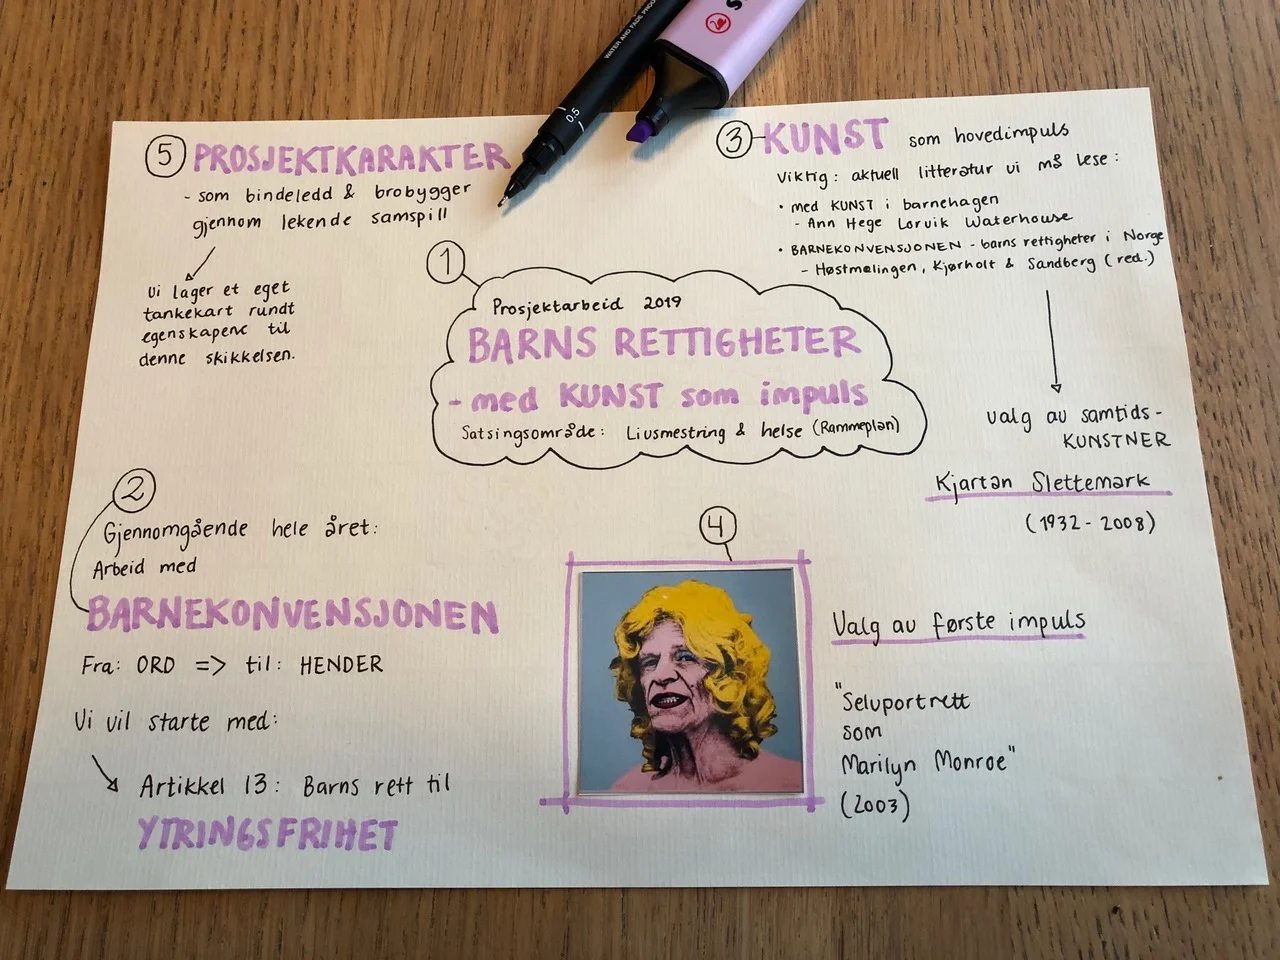 WATER AND FADE PROO
0.5
S
5 PROSJEKTKARAKTER
- som bindeledd & brobygger
gjennom lekende samspill
Vi lager et eget
tankekart rundt
egenskapene til
denne skikkelsen.
3 KUNST som hovedimpuls
Viktig: aktuell litteratur vi må lese:
• med KUNST i barnehagen
- Ann Hege Lorvik Waterhouse
• BARNEKONVENSJONEN - barns rettigheter i Norge
- Høstmælingen, Kjørholt & Sandberg (red.)
valg av samtids-
KUNSTNER
Kjartan Slettemark
(1932 - 2008)
1
Prosjektarbeid 2019
BARNS RETTIGHETER
- med KUNST som impuls
Satsingsområde: Livsmestring & helse (Rammeplan)
2
Gjennomgående hele året:
Arbeid med
BARNEKONVENSJONEN
Fra: ORD => til: HENDER
Vi vil starte med:
Artikkel 13: Barns rett til
YTRINGSFRIHET
4
Valg av første impuls
"Selvportrett
som
Marilyn Monroe"
(2003)